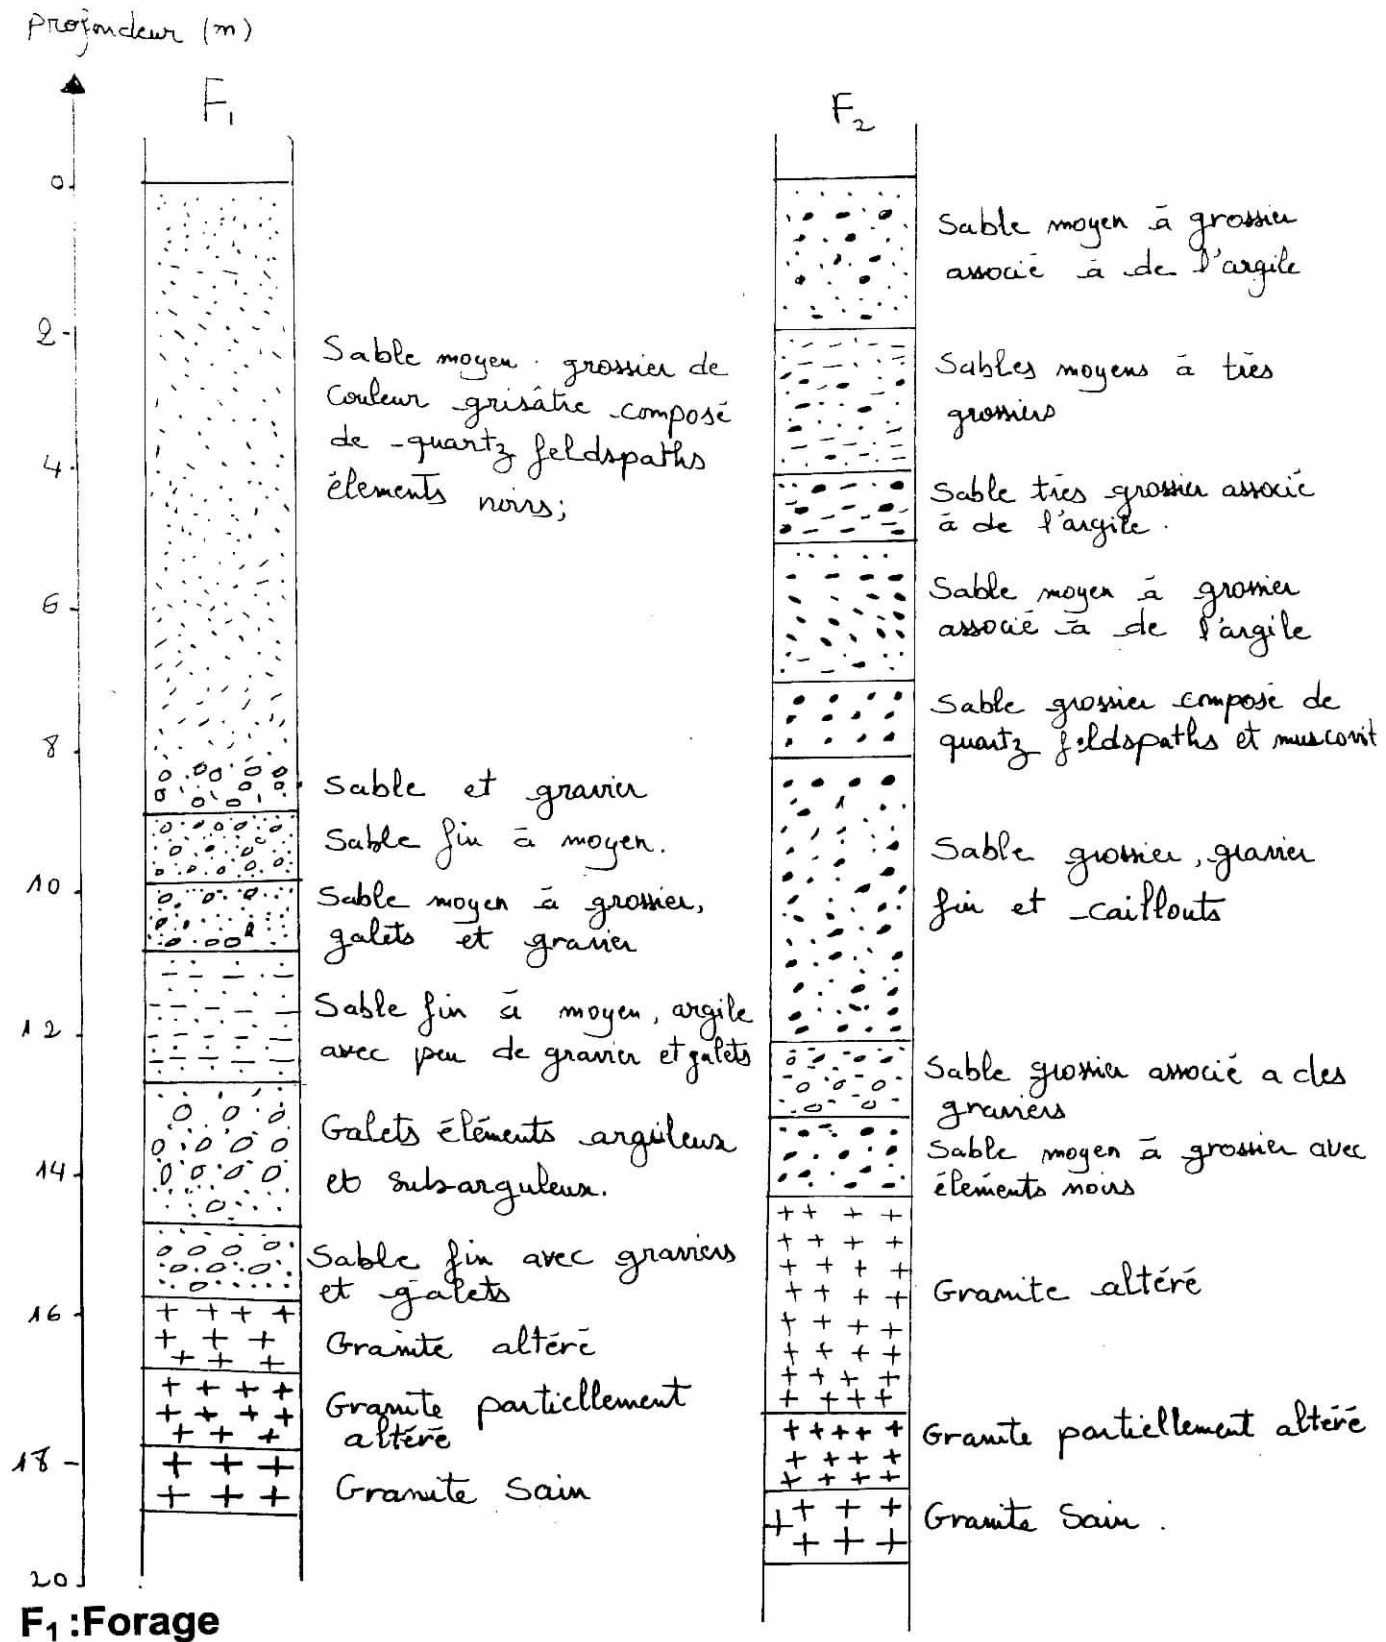 profondeur (m)
F₁
F₂
0
2
4
6
8
10
12
14
16
18
20
Sable moyen grossier de
couleur grisâtre composé
de quartz feldspaths
élements noirs;
Sable et gravier
Sable fin à moyen.
Sable moyen à grossier,
galets et gravier
Sable fin à moyen, argile
avec peu de gravier et galets
Galets éléments arguleux
et subarguleux.
Sable fin avec graviers
et galets
Granite altéré
Granite partiellement
altéré
Granite Sain
Sable moyen à grossier
associé à de l'argile
Sables moyens à très
grossiers
Sable très grossier associé
à de l'argile.
Sable moyen à grossier
associé à de l'argile
Sable grossier composé de
quartz feldspaths et muscovit
Sable grossier, gravier
fin et caillouts
Sable grossier associé a des
graviers
Sable moyen à grossier avec
éléments noirs
Granite altéré
Granite partiellement altéré
Granite Sain.
F₁ :Forage